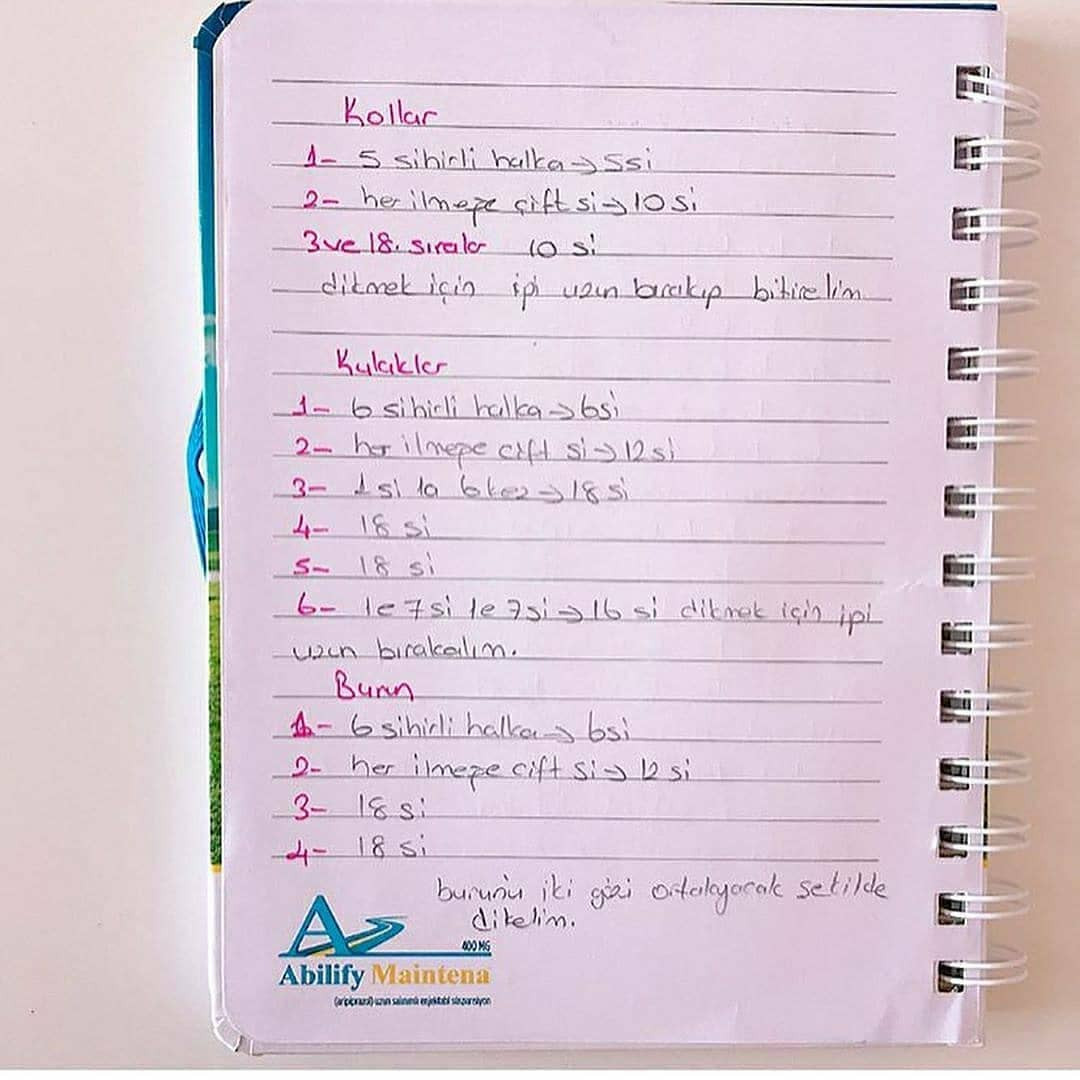 Kollar
1- 5 sihirli halka → 5si
2- her ilmeğe çift si → 10 si
3 ve 18. sıralar 10 si
dikmek için ipi uzun bırakıp bitirelim
Kulaklar
1- 6 sihirli halka → 6si
2- her ilmeğe çift si → 12 si
3- 1 si 1a 6 kez → 18 si
4- 18 si
5- 18 si
6- 1e 7si 1e 7si → 16 si dikmek için ipi
uzun bırakalım.
Burun
1- 6 sihirli halka → 6si
2- her ilmeğe çift si → 12 si
3- 18 si
4- 18 si
burunu iki gözü ortalıyacak şekilde
dikelim.
400 MG
Abilify Maintena
(aripiprazol) uzun salınımlı enjektabl süspansiyon